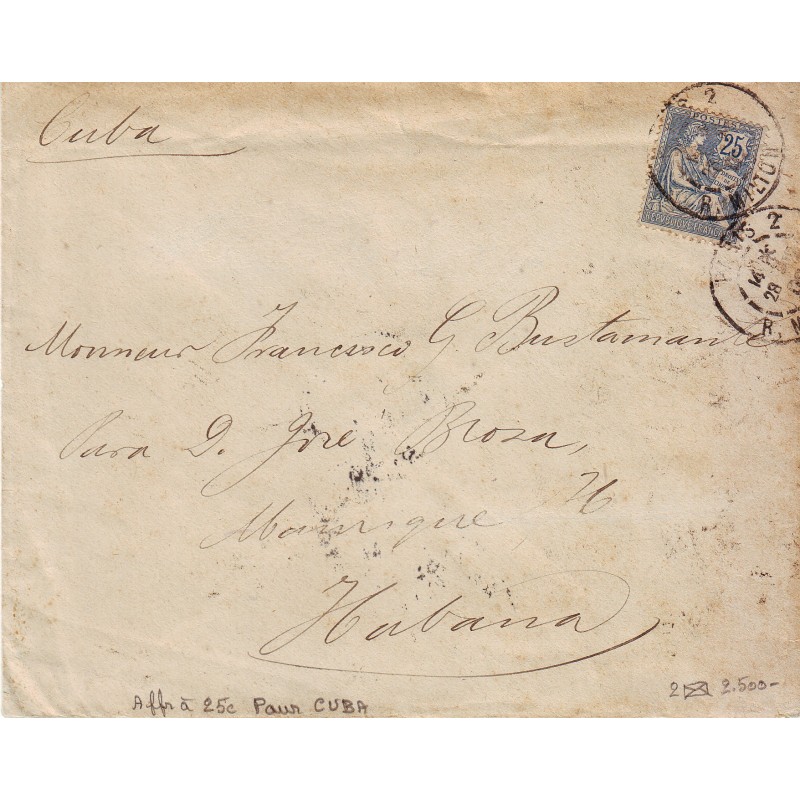 Cuba
POSTES
25
REPVBLIQVE FRANÇAISE
2
R. MILTON
PARIS 2
14
28
R. M
Monsieur Francisco G. Bustamante
Para D. José Brosa,
Manrique
Habana
Affr à 25c Pour CUBA
2 2.500-